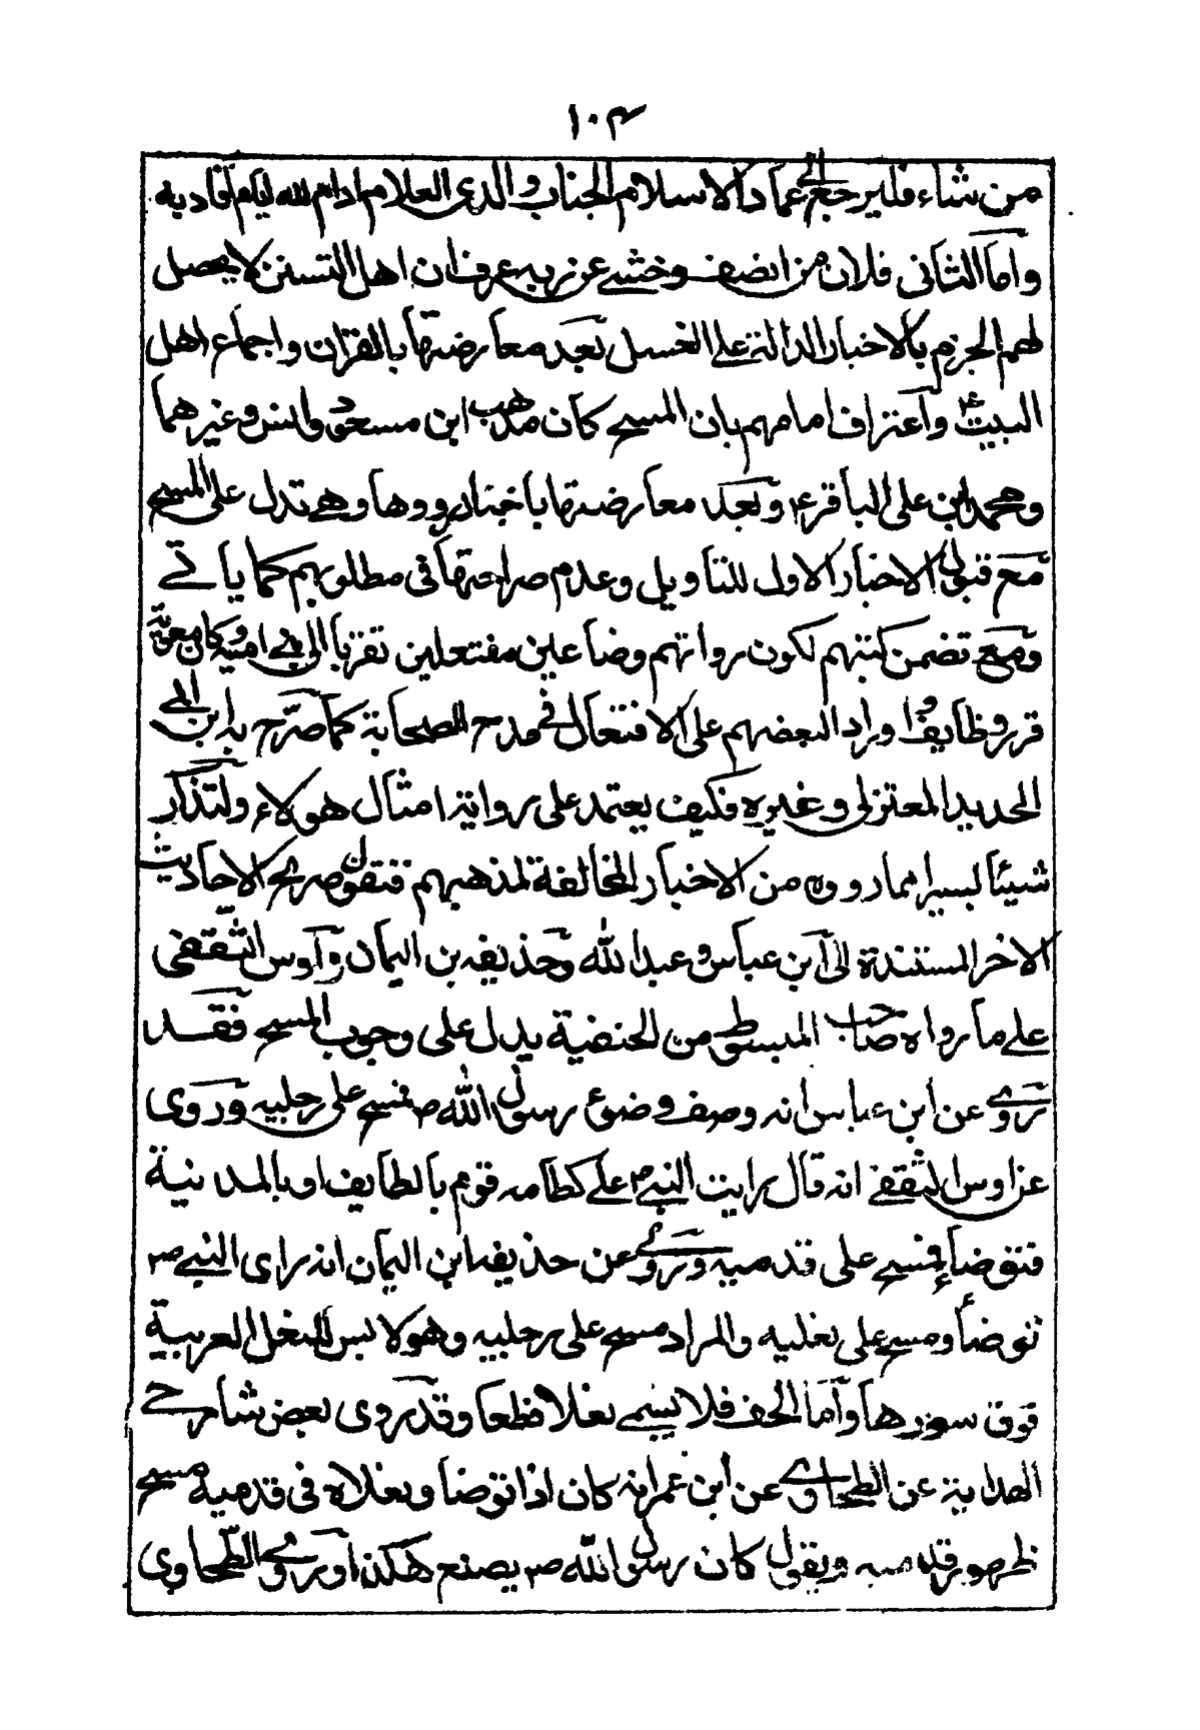 ١٠٤
من شاء فليرجع الى عماد الاسلام لجناب والدى العلام ادام الله ايام افاداته
واما الثانى فلان من انصف وخشے عن ربه عرف ان اهل التسنن لا يحصل
لهم الجزم بالاخبار الدالة على الغسل بعد معارضتها بالقران واجماع اهل
البيت ع واعتراف امامهم بان المسح كان مذهب ابن مسعود وانس وغيرهما
ومحمد ابن على الباقر ع وبعد معارضتها باخبار رووها وهے تدل على المسح
مع قبول الاخبار الاول للتاويل وعدم صراحتها فى مطلوبهم كما ياتے
ومع تضمن كتبهم لكون رواتهم وضاعين مفتعلين تقربا الى بنے امية وكان معوية
قرر وظايف واورادا لبعضهم على الافتعال فى مدح الصحابة كما صرح به ابن ابى
الحديد المعتزلى وغيره فكيف يعتمد على رواية امثال هولاء ولتذكر
شيئا يسيرا مما رووه من الاخبار المخالفة لمذهبهم فنقول صريح الاحاديث
الاخر المستندة الى ابن عباس وعبد الله وحذيفه بن اليمان واوس الثقفى
على ما رواه صاحب المبسوط من الحنفية يدل على وجوب المسح فقد
روے عن ابن عباس انه وصف وضوء رسول الله ص فمسح على رجليه وروى
عن اوس الثقفے انه قال رايت النبے ص على كظامه قوم بالطايف او بالمدينة
فتوضأ فمسح على قدميه وروے عن حذيفه ابن اليمان انه راى النبے ص
توضأ ومسح على نعليه والمراد مسح على رجليه وهو لابس للنعل العربية
فوق سورها واما الخف فلا يسمے نعلا قطعا وقد روى بعض شارحے
الهداية عن الطحاوے عن ابن عمر انه كان اذا توضا ونعلاه فى قدميه مسح
ظهور قدميه ويقول كان رسول الله ص يصنع هكذا وروى الطحاوى